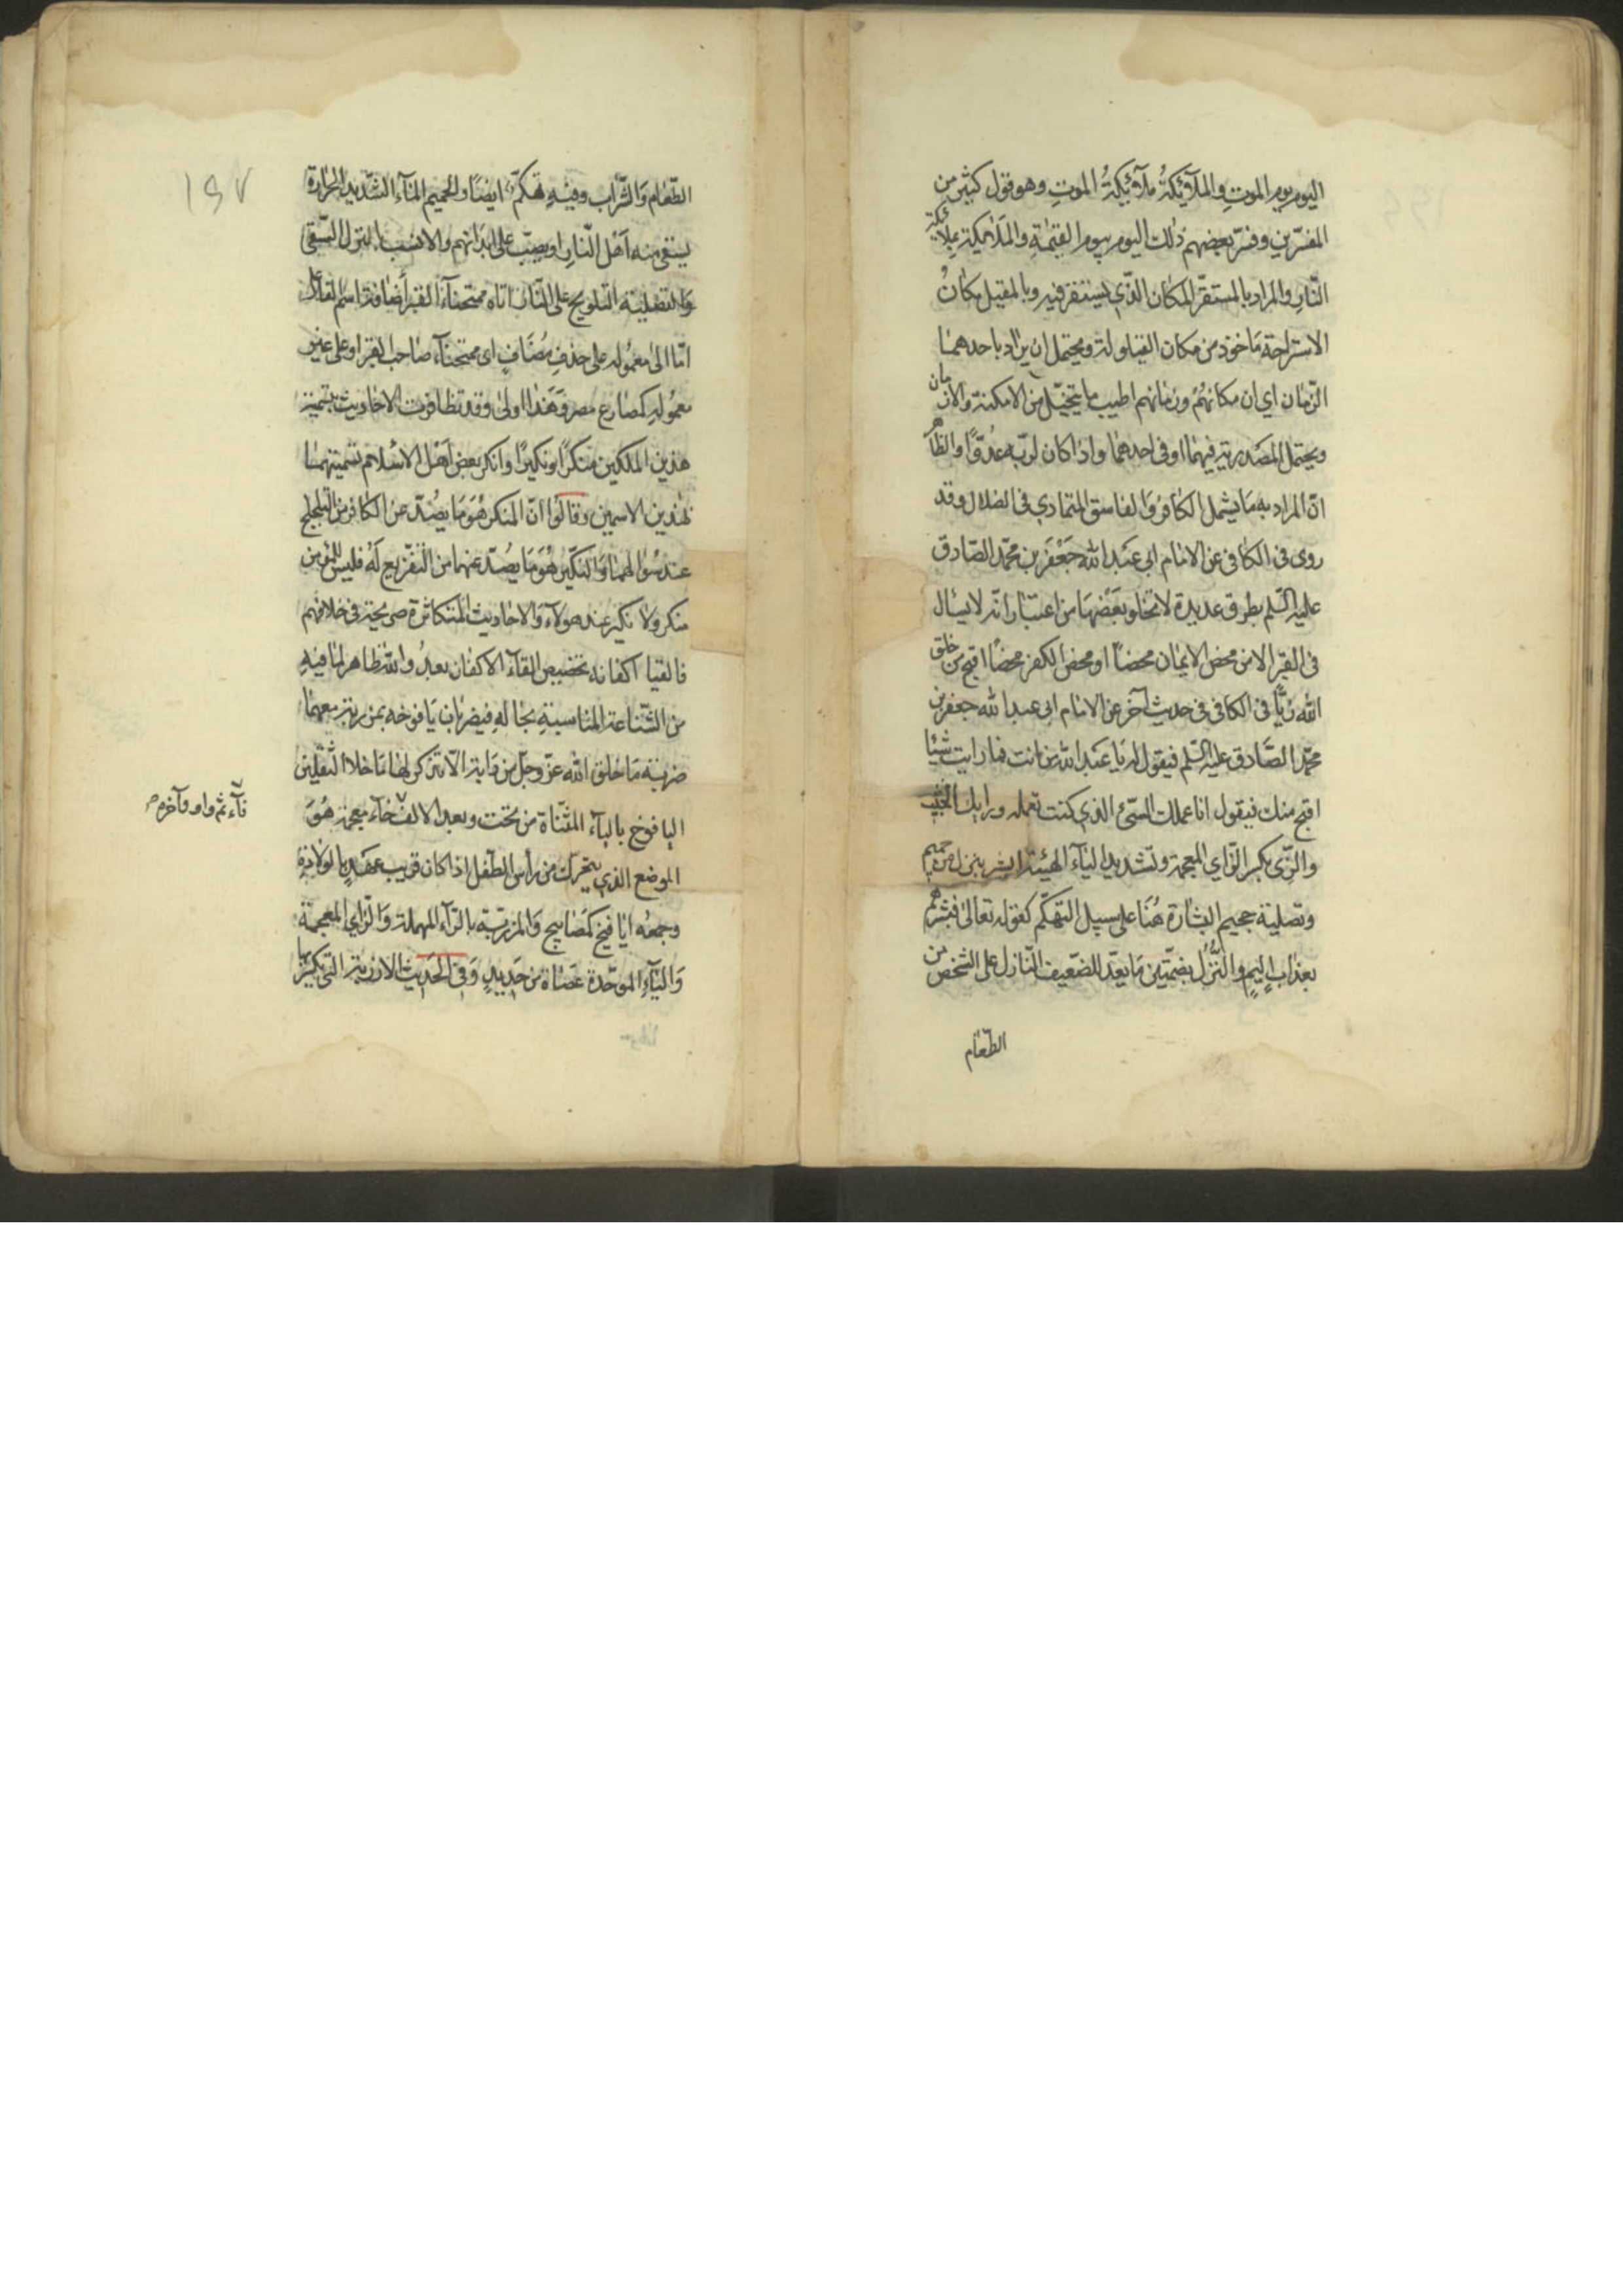 اليوم يوم الموت والملآئكةُ ملآئكةُ الموتِ وهو قول كثير من
المفسّرين وفسّر بعضهم ذلك اليوم بيوم القيٰمةِ والملائكة بملائكة
النّارِ والمراد بالمستقرّ المكان الذّي يستقر فيه وبالمقيل مكانُ
الاستراحة مَاخوذ من مكان القيلولة ويحتمل ان يراد باحدهمٰا
الزّمان اي ان مكانهُمْ وزمٰانهم اطيب ما يتخيّل من الامكنة والازمان
ويحتمل المصَدريّة فيهمٰا او فى احدهمٰا واذا كان لربّه عدُوًّا والظّاهر
انّ المراد به مَا يشمل الكٰافر وَالفاسق المتمادي فى الضلال وقد
روى فى الكافى عن الامٰام ابى عَبد الله جَعْفَر بن محمّد الصّادق
عليه السّلم بطرق عديدة لا تخلو بَعْضهَا من اعتبٰار انّه لا يسٰال
فى القبر الا من محض الايمٰان محضاً او محض الكفر محضًا اقبح من خلق
الله زِيًّا فى الكافى فى حديث آخر عن الامام ابى عبد الله جعفر بن
محمّد الصَّادق عليه السّلم فيقول له يَا عَبد الله من انت فما رايت شيئا
اقبح منك فيقول انا عملك السّئ الذي كنت تعمله ورايك الخبيث
والزّى بكسر الزّاي المعجمة وتشديد اليٰآء الهيئة ابشر بنزل من حميم
وتصلية جحيم البشٰارة هُنَا على سبيل التهكّم كقوله تعالىٰ فبشّرهم
بعذاب اليمٍ والنُّزُل بضمّتين مَا يعدّ للضّيف النّازل على الشخص من
الطّعٰام
١٤٧
الطّعٰام وَالشّراب وفيهِ تهكّم ايضًا والحميم المٰآء الشّديد الحرٰارة
يستقى منه اَهْل النّارِ او يصبّ على ابدٰانهم والانسب بالنزل السّقى
وَالتصلية التلويح على النّار اتاه ممتحنآء القبر اضٰافة اسم الفاعل
امّا الىٰ معموله على حذفِ مُضَافٍ اى ممتحنآء صٰاحب القبر او على غير
معمُولهِ كمصٰارع مصر وَهَذٰا اولىٰ وقد تظافرت الاحٰاديث بتسمية
هذين الملكين منكرًا ونكيرًا وانكر بعض اَهْل الاسْلام تسميتهمٰا
بهٰذين الاسمين وقالُوا انّ المنكر هُوَ مَا يصْدر عن الكافر من التلجلج
عند سُؤالهمٰا وَالنكير هُوَ مَا يصْدر عنهما من التقريع لَهُ فليس للمؤمن
منكر ولا نكير عند هولآء وَالاحٰاديث المتكاثرة صريحة فى خلافهم
فالقيا اكفانه تخصيص القآء الاكفان بعدُ والله ظاهر لمٰا فيهِ
من الشّنٰاعة المناسبةِ بحٰا لهِ فيضربٰان يَافوخه بمرزبة معهمٰا
ضربَة مَا خلق الله عزّ وجلّ من دٰابة الّا تذكر لهٰا مَا خلا الثّقلين
اليافوخ باليآء المثنّاة من تحت وبعد الالف خٰآء معجمة هُوَ
فٰآء ثم واو وآخره
الموضع الذي يتحرّك من رأس الطفل اذا كان قريب عهَدٍ بالولادة
وجمعُه ايٰافيخ كمَصٰابيح وَالمرزبّة بالرّآء المهملة وَالزّاي المعجمة
وَالبآءِ الموحّدة عَصٰاة من حَديدٍ وَفى الحَديث الارزبة التى يكسر بها